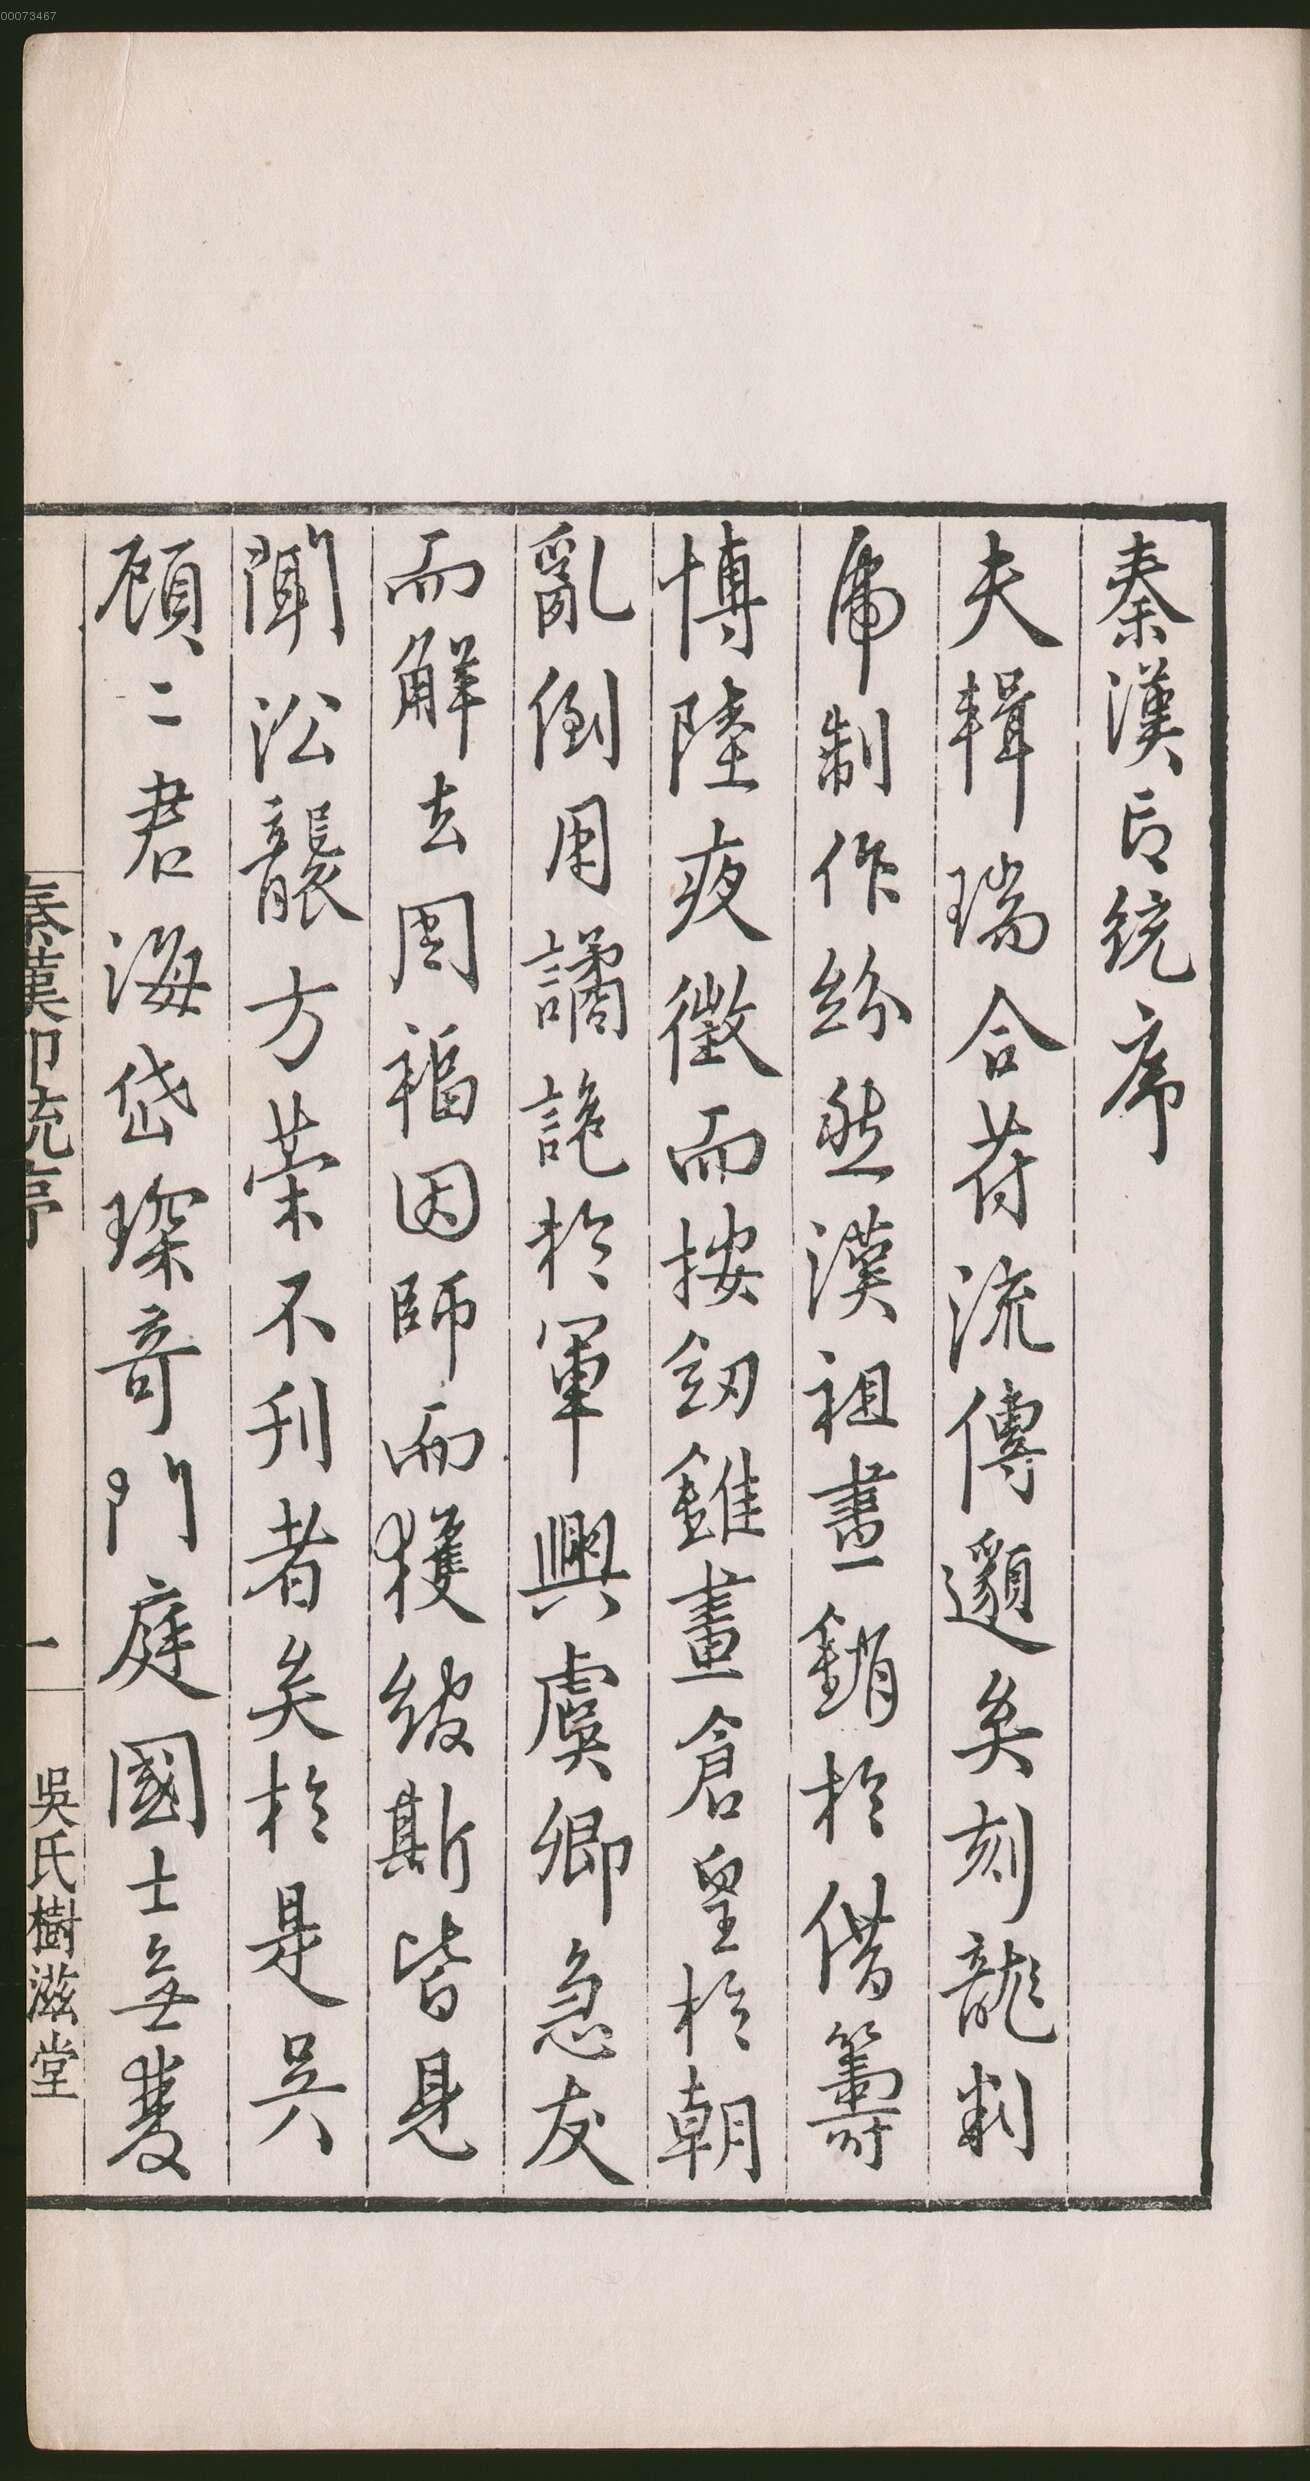 00073467
秦漢印統序
夫輯瑞合符流傳邈矣刻龍判
虎制作紛然漢祖畫銷於借籌
博陸夜徵而按劍錐畫倉皇於朝
亂倒用譎詭於軍興虞卿急友
而解去周福因師而獲綬斯皆見
聞沿襲方策不刊者矣於是吳
顧二君海岱琛奇門庭國士無雙
秦漢印統序
一
吳氏樹滋堂